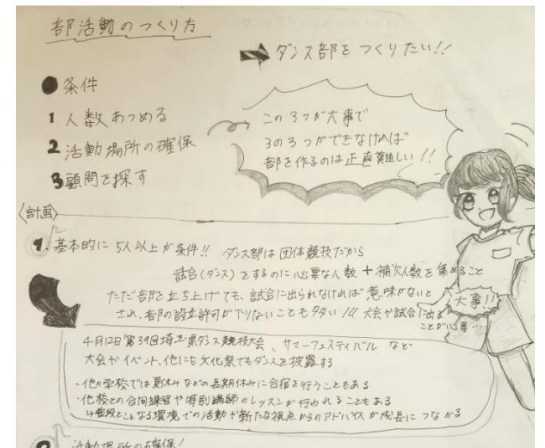 部活動のつくり方
➡ ダンス部をつくりたい!!
●条件
1 人数あつめる
2 活動場所の確保
3 顧問を探す
この3つが大事で
3の3つができなければ
部を作るのは正直難しい!!
〈計画〉
1. 基本的に5人以上が条件!! ダンス部は団体競技だから
試合(ダンス)をするのに必要な人数+補欠人数を集めること
ただ部を立ち上げても、試合に出られなければ意味がないと
され、部の設立許可が下りないことも多い!!! 大会や試合に出る
ことが必要…
大事!!
4月12日 第39回埼玉県ダンス競技大会、サマーフェスティバル など
大会やイベント、他にも文化祭でもダンスを披露する
・他の学校では夏休みなどの長期休みに合宿を行うこともある
・他校との合同練習や特別講師のレッスンが行われることもある
ことなる環境での活動や新たな視点からのアドバイスが成長につながる
2 活動場所の確保!